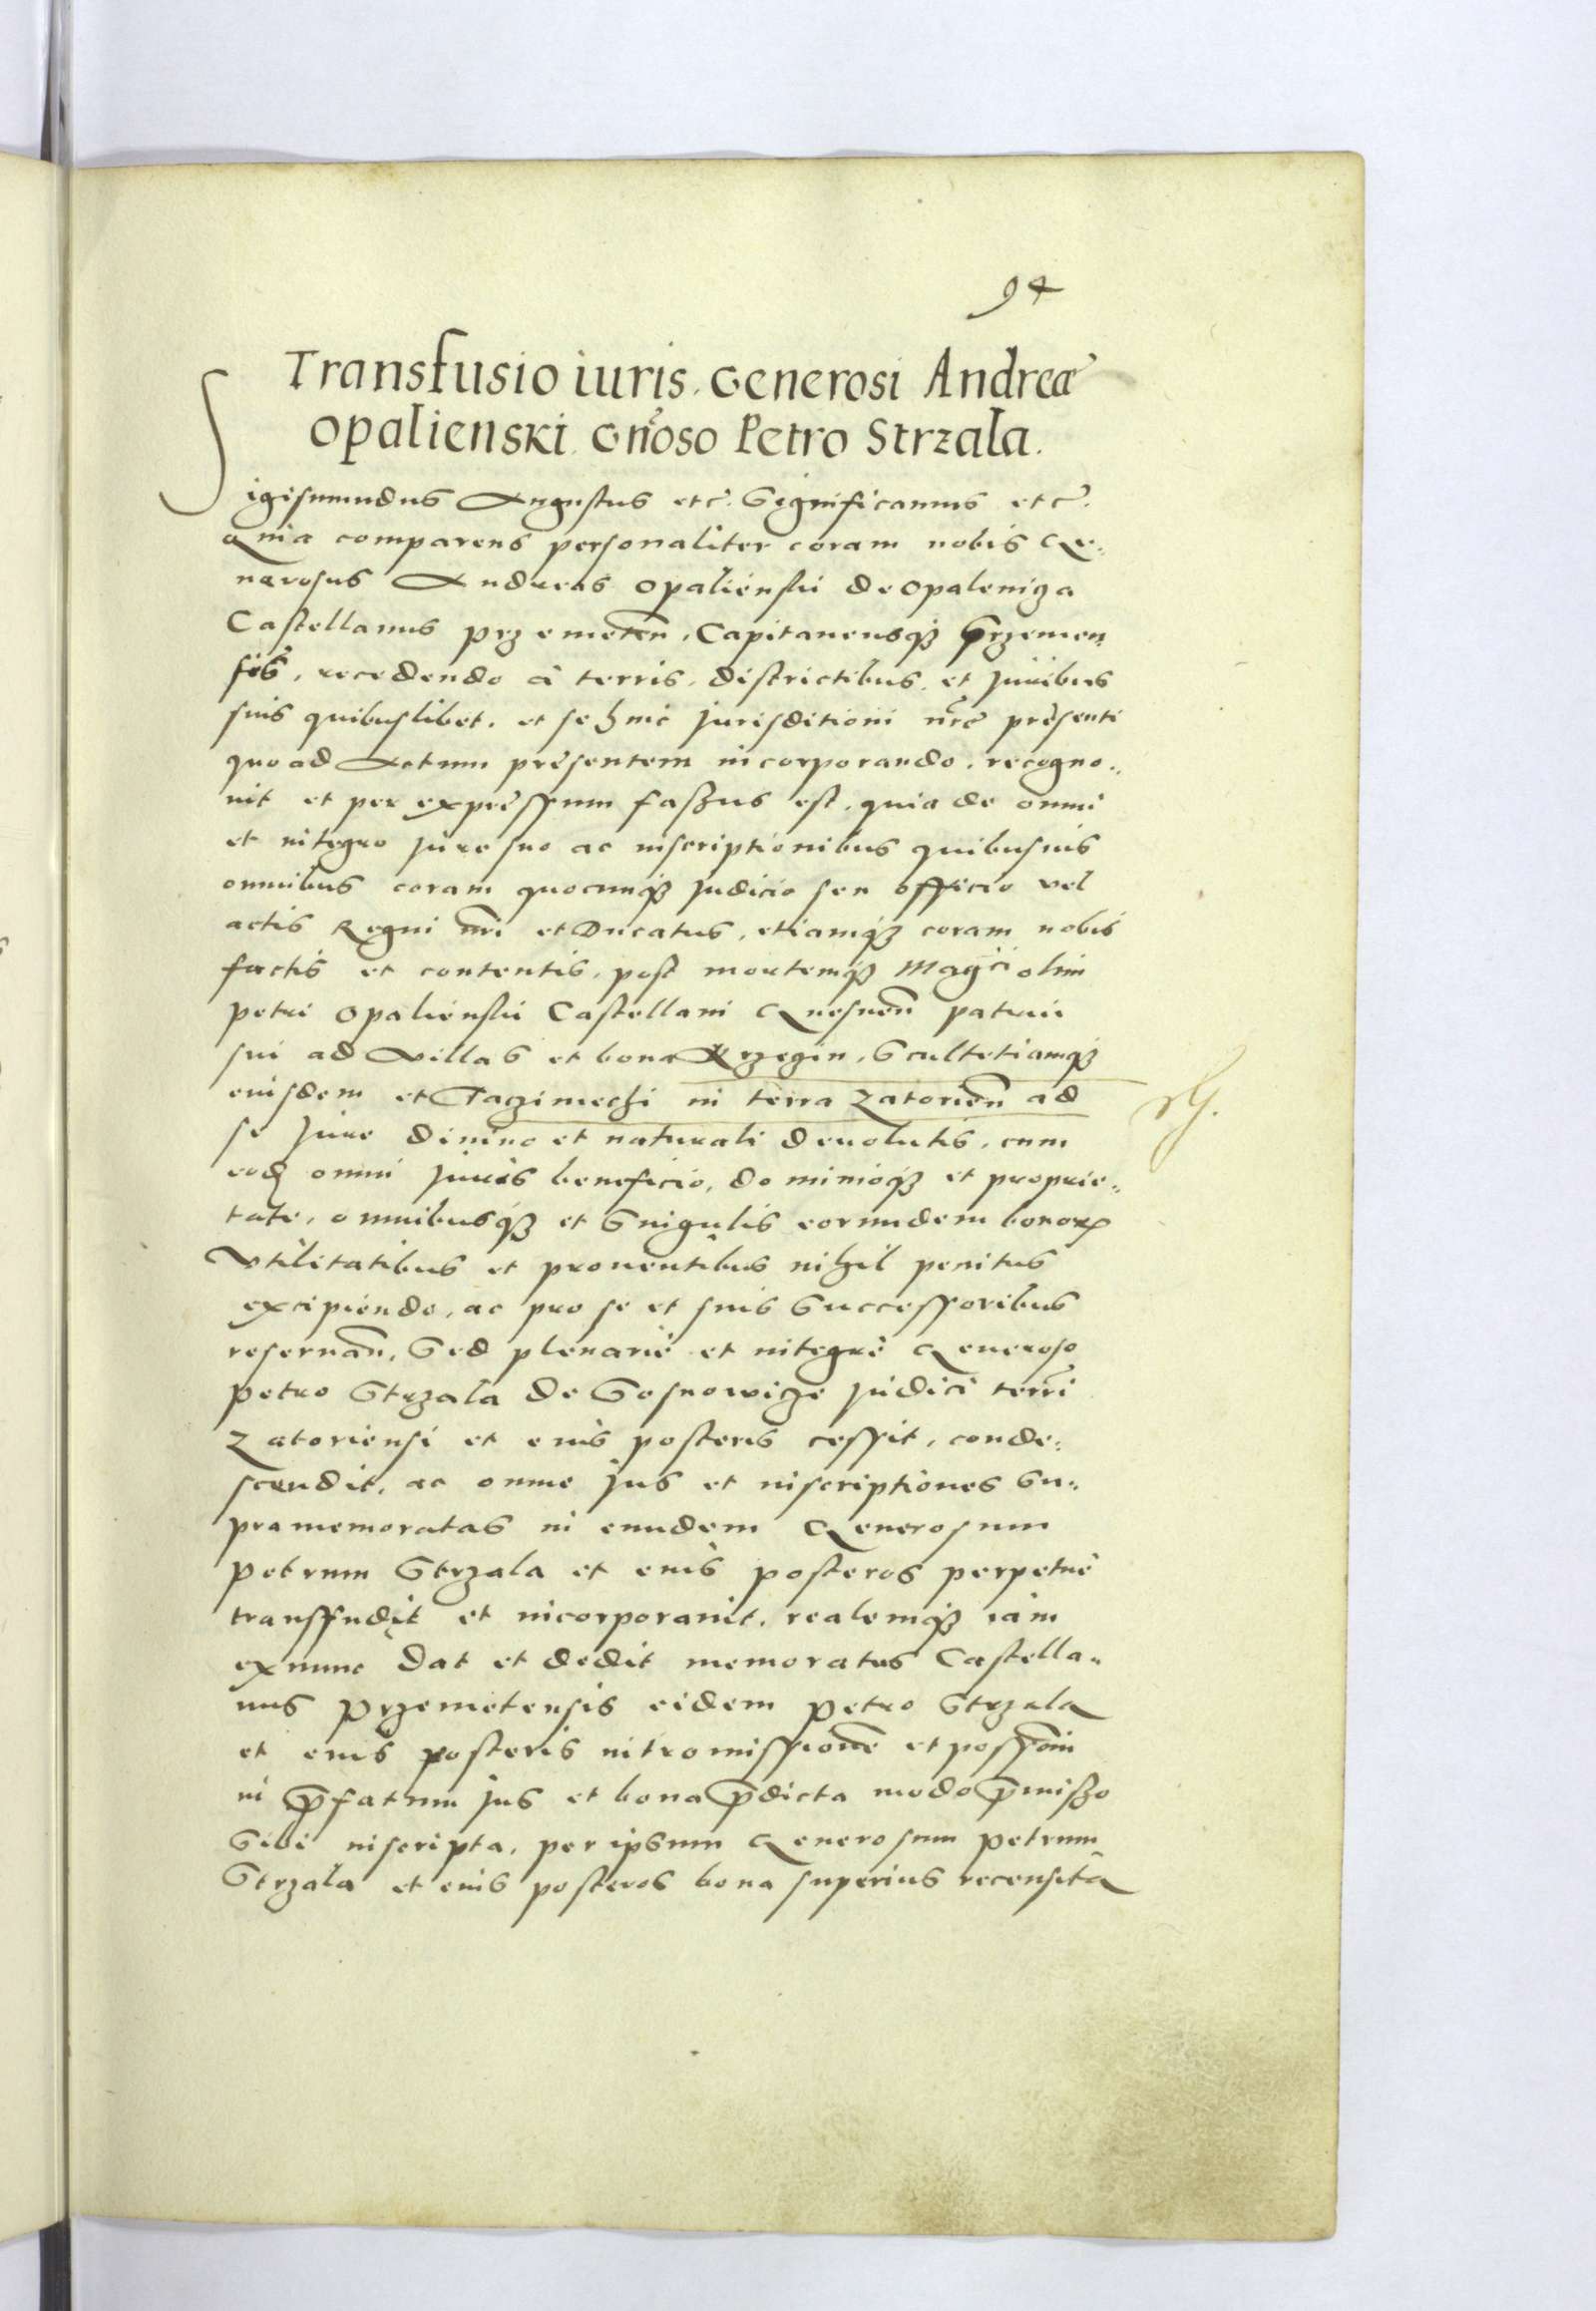 94
Transfusio iuris. Generosi Andreæ
Opalienski. Gn̄oso Petro Strzala.
Sigismundus Augustus etc̄. Significamus etc̄.
Quia comparens personaliter coram nobis Ge=
nerosus Andreas Opalienski de Opalenicza
Castellanus Przemeten̄, Capitaneusqȝ Przemen
sis, recedendo à terris, districtibus, et juribus
suis quibuslibet, et se huic jurisditioni nr̄e presenti
quo ad Actum presentem incorporando, recogno=
uit et per expressum faszus est, quia de omni
et integro jure suo ac inscriptionibus quibusuis
omnibus coram quocunqȝ judicio seu officio vel
actis Regni nr̄i et Ducatus, etiamqȝ coram nobis
factis et contentis, post mortemqȝ Mag̃ci olim
Petri Opalienski Castellani Gnesnen̄ patrui
sui ad Villas et bona Xrzegin, Scultetiamqȝ
eiusdem et Taczimechi in terra Zatorien̄ ad
se jure diuino et naturali deuolutis, cum
eod̃ omni juris beneficio, dominioqȝ et proprie=
tate, omnibusqȝ et Singulis eorundem bonorꝝ
Vtilitatibus et prouentibus nihil penitus
excipiendo, ac pro se et suis Successoribus
reseruan̄, Sed plenariè et integrè Generoso
Petro Strzala de Sosnowicze judici terr̄i
Zatoriensi et eius posteris cessit, conde=
scendit, ac omne jus et inscriptiones Su=
pramemoratas in eundem Generosum
Petrum Strzala et eius posteros perpetuè
transfudit et incorporauit, realemqȝ iam
ex nunc dat et dedit memoratus Castella=
nus Przemetensis eidem Petro Strzala
et eius posteris intromissionē et possōm
in p̄fatum jus et bona p̄dicta modo p̄miszo
Sibi inscripta, per ipsum Generosum Petrum
Strzala et eius posteros bona superius recensita